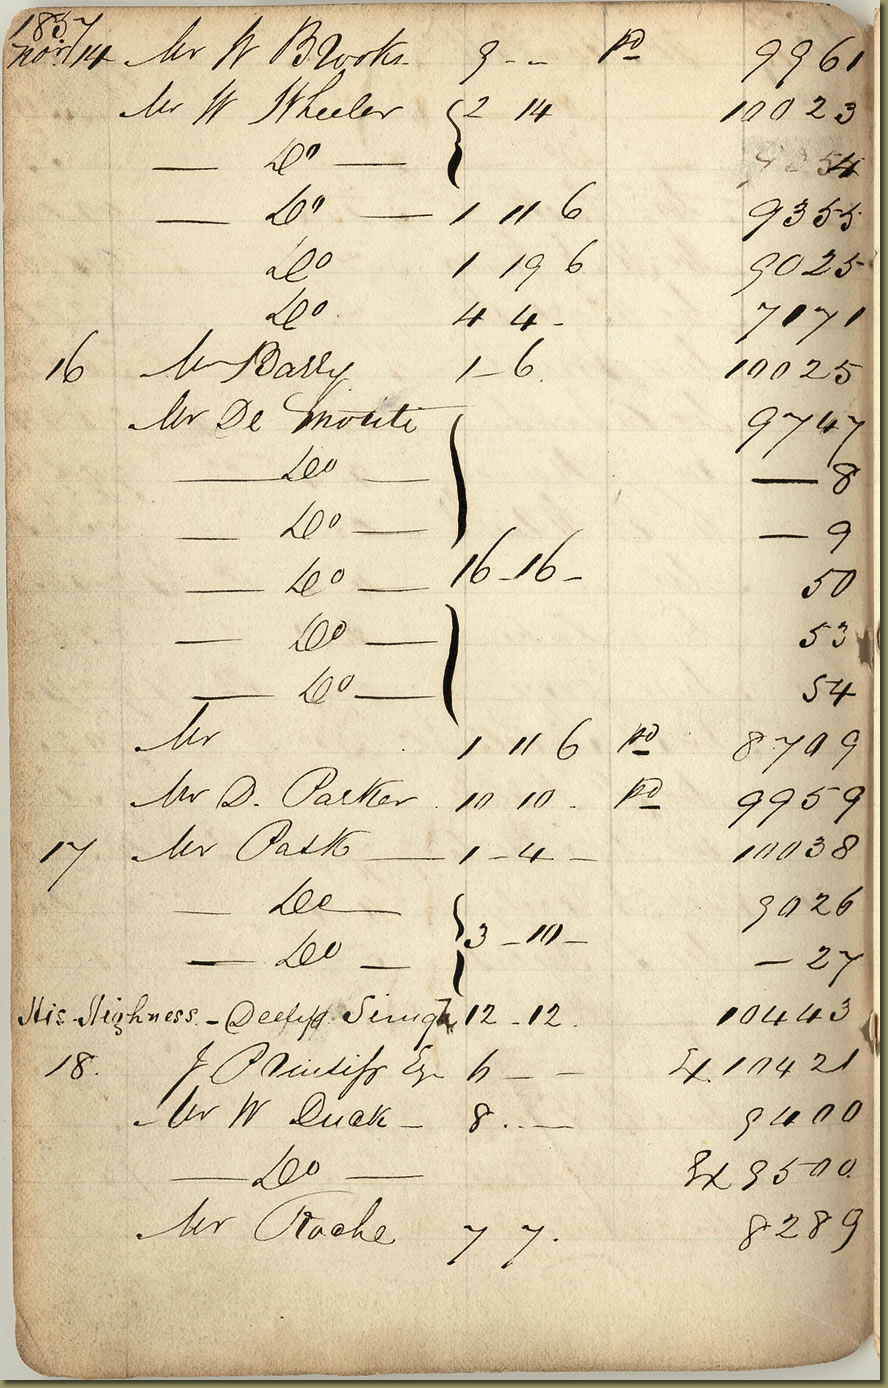 1857
Novr 14 Mr W Brooks 9 - - pd 9961
Mr W Wheeler 2 14 10023
— Do — 54
— Do — 1 11 6 9355
Do 1 19 6 9025
Do 4 4 - 7171
16 Mr Barry 1 - 6 10025
Mr De 9747
— Do — — 8
— Do — — 9
— Do — 16 - 16 - 50
— Do — 53
— Do — 54
Mr 1 11 6 pd 8709
Mr D. Parker 10 10 - pd 9959
17 Mr Pask — 1 - 4 - 10038
— Do — 9026
— Do — 3 - 10 - — 27
His Highness - 12 - 12 10443
18. J Esqr 6 - - Ex 10421
Mr W Duck - 8 . - - 9400
— Do — Ex 9500
Mr Roche 7 7 . 8289